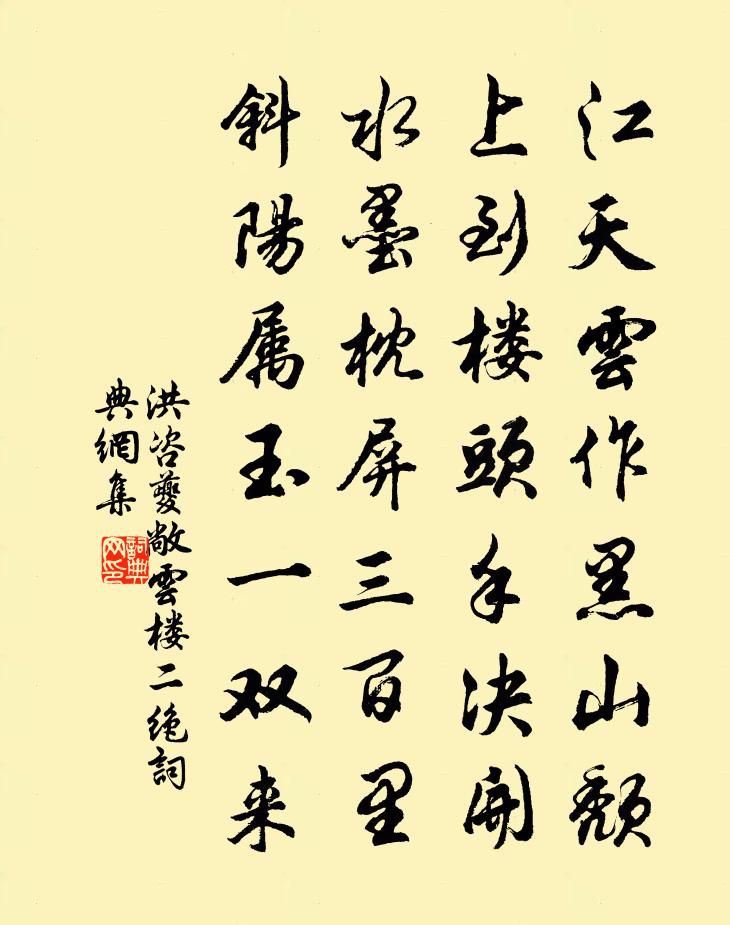 江天雲作黑山頹
上到楼頭手决開
水墨枕屏三百里
斜陽属玉一双来
洪咨夔敞雲楼二绝詞
典網集
詞典网印